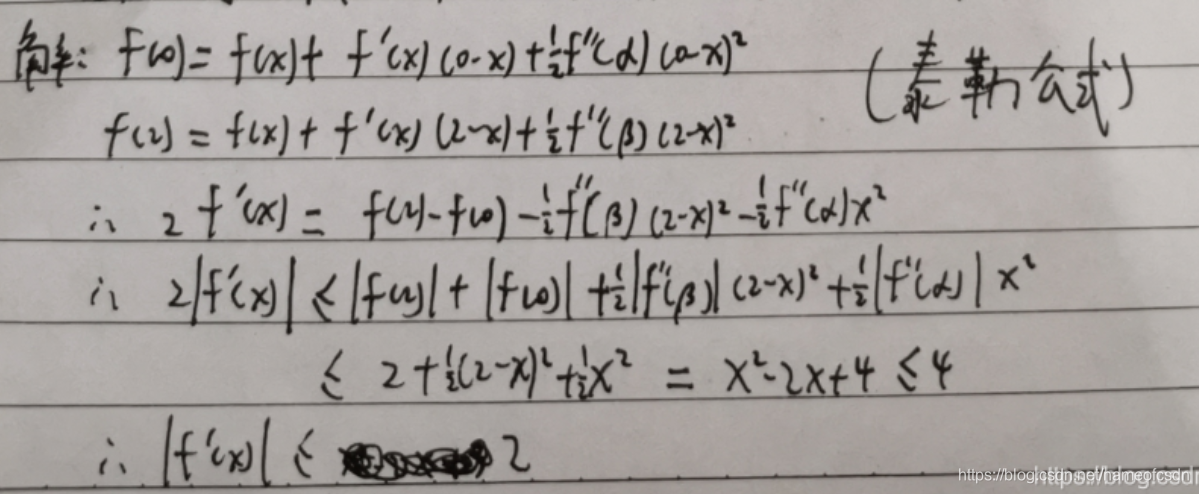 解: f(0) = f(x) + f'(x)(0-x) + ½f''(α)(0-x)² (泰勒公式)
f(2) = f(x) + f'(x)(2-x) + ½f''(β)(2-x)²
∴ 2f'(x) = f(2) - f(0) - ½f''(β)(2-x)² - ½f''(α)x²
∴ 2|f'(x)| ≤ |f(2)| + |f(0)| + ½|f''(β)|(2-x)² + ½|f''(α)|x²
≤ 2 + ½(2-x)² + ½x² = x² - 2x + 4 ≤ 4
∴ |f'(x)| ≤ 2
https://blog.csdn.net/nameofcsdn
https://blog.csdn